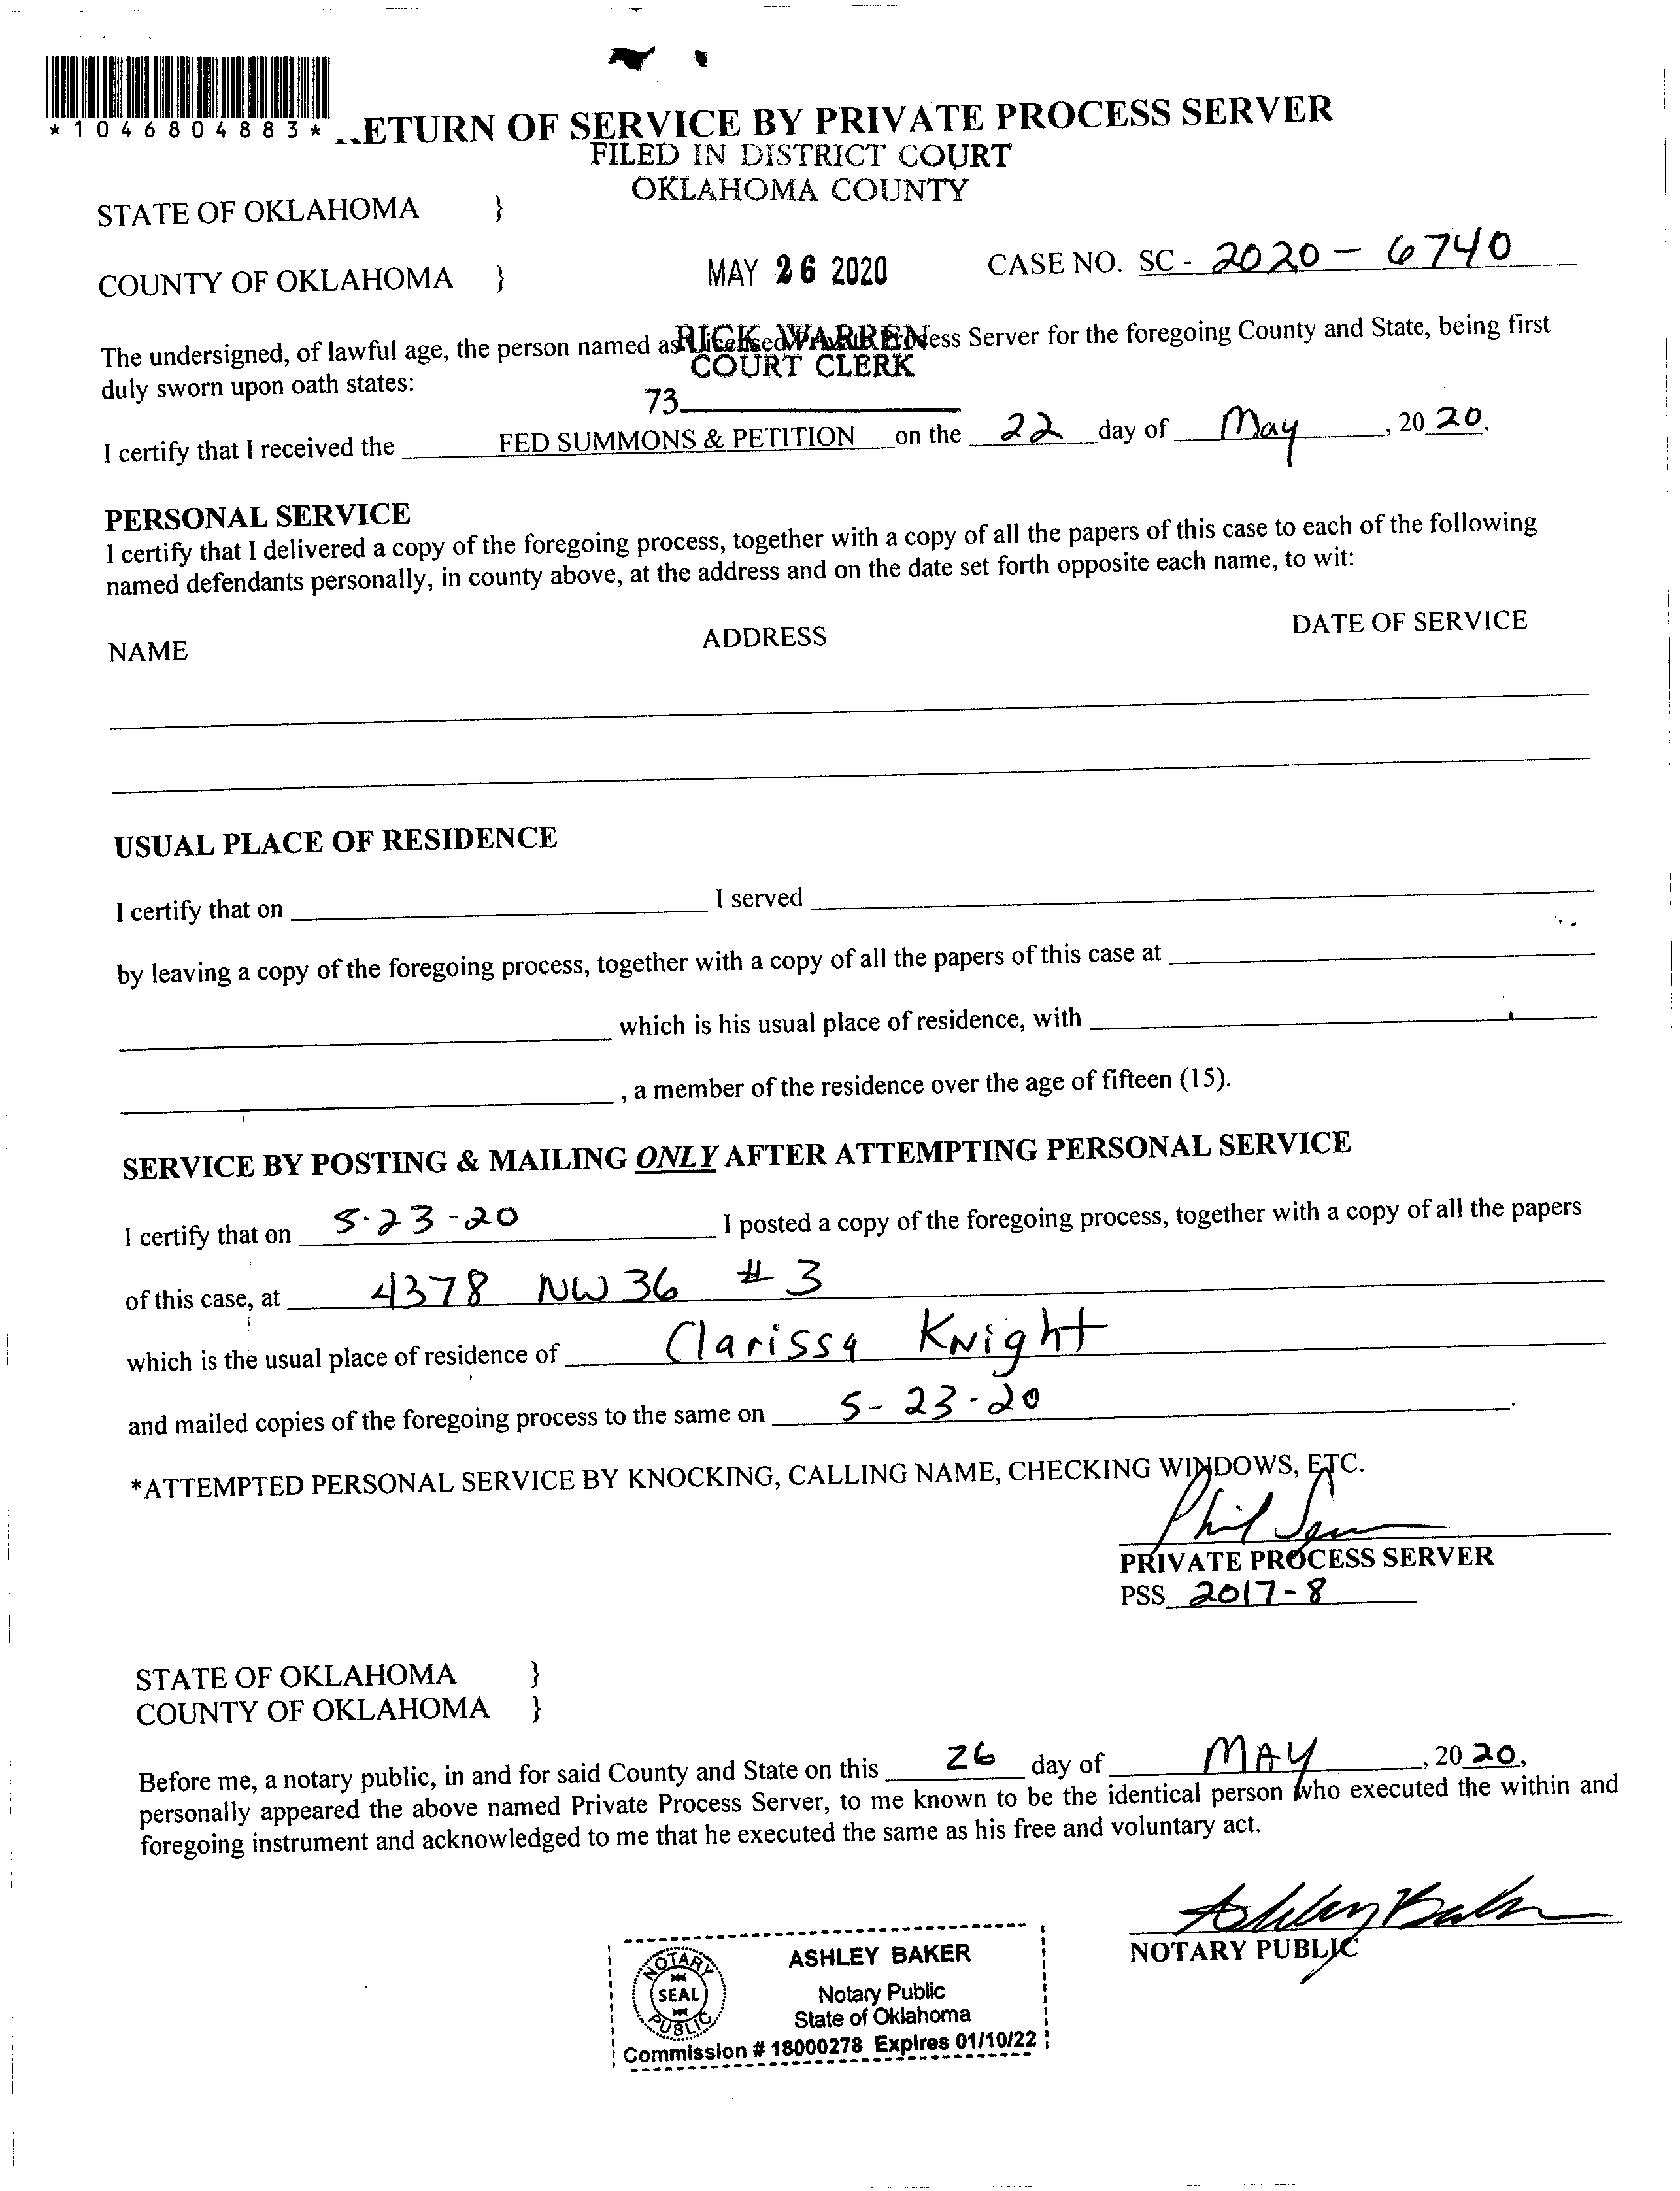 *1046804883*
ETURN OF SERVICE BY PRIVATE PROCESS SERVER
FILED IN DISTRICT COURT
OKLAHOMA COUNTY
STATE OF OKLAHOMA }
COUNTY OF OKLAHOMA } MAY 26 2020 CASE NO. SC - 2020 - 6740
The undersigned, of lawful age, the person named as Licensed Private Process Server for the foregoing County and State, being first
RICK WARREN
COURT CLERK
duly sworn upon oath states:
73
I certify that I received the FED SUMMONS & PETITION on the 22 day of May, 2020.
PERSONAL SERVICE
I certify that I delivered a copy of the foregoing process, together with a copy of all the papers of this case to each of the following
named defendants personally, in county above, at the address and on the date set forth opposite each name, to wit:
NAME ADDRESS DATE OF SERVICE
USUAL PLACE OF RESIDENCE
I certify that on I served
by leaving a copy of the foregoing process, together with a copy of all the papers of this case at
which is his usual place of residence, with
, a member of the residence over the age of fifteen (15).
SERVICE BY POSTING & MAILING ONLY AFTER ATTEMPTING PERSONAL SERVICE
I certify that on 5-23-20 I posted a copy of the foregoing process, together with a copy of all the papers
of this case, at 4378 NW 36 # 3
which is the usual place of residence of Clarissa Knight
and mailed copies of the foregoing process to the same on 5-23-20.
*ATTEMPTED PERSONAL SERVICE BY KNOCKING, CALLING NAME, CHECKING WINDOWS, ETC.
Phil
PRIVATE PROCESS SERVER
PSS 2017-8
STATE OF OKLAHOMA }
COUNTY OF OKLAHOMA }
Before me, a notary public, in and for said County and State on this 26 day of MAY, 2020,
personally appeared the above named Private Process Server, to me known to be the identical person who executed the within and
foregoing instrument and acknowledged to me that he executed the same as his free and voluntary act.
Ashley Baker
NOTARY PUBLIC
NOTARY SEAL PUBLIC
ASHLEY BAKER
Notary Public
State of Oklahoma
Commission # 18000278 Expires 01/10/22